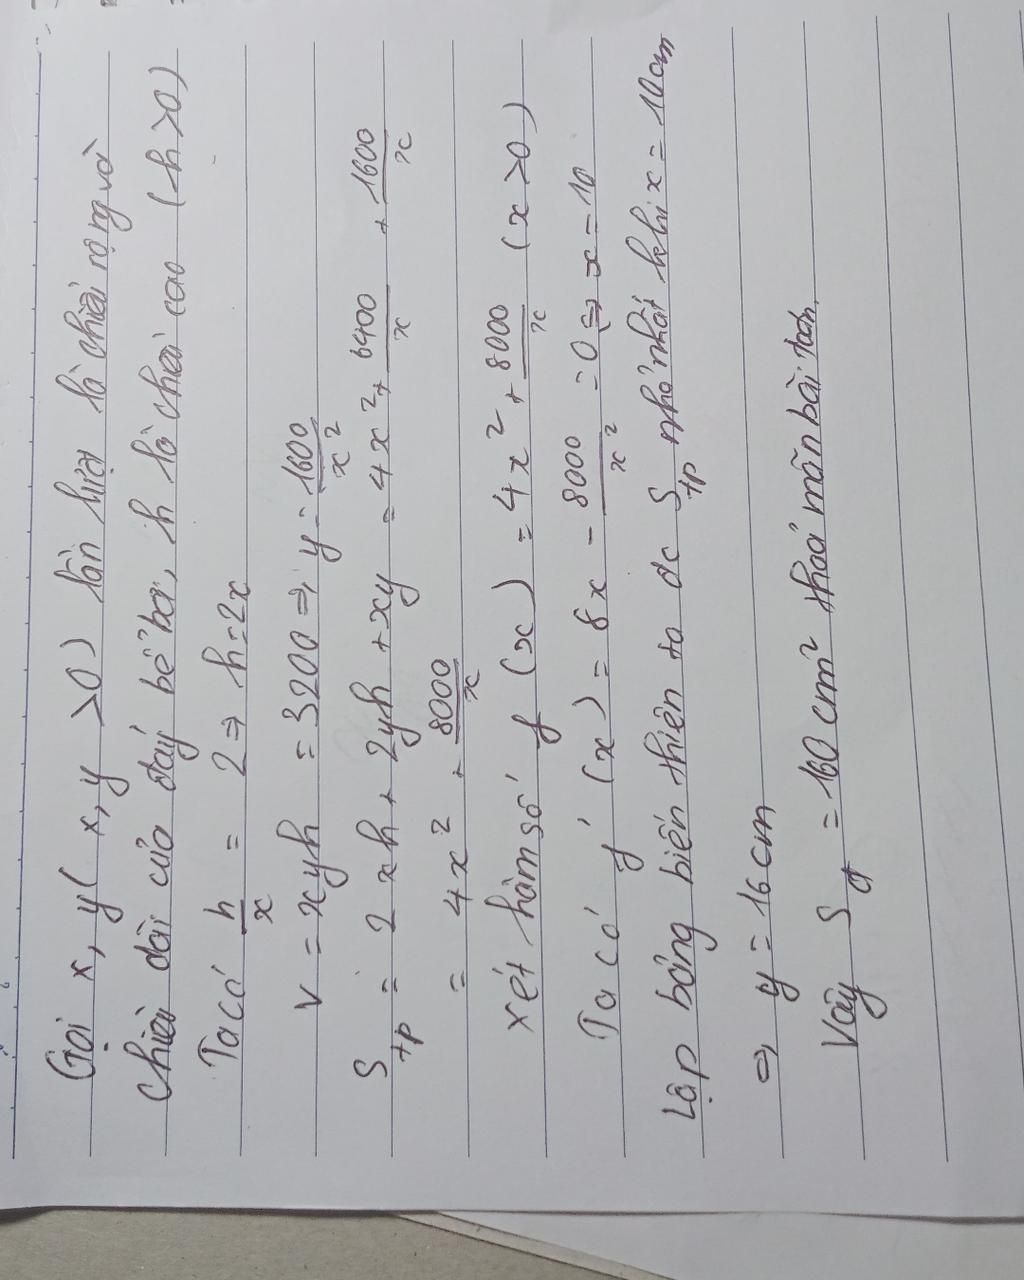 Gọi x, y ( x, y >0) lần lượt là chiều rộng và
chiều dài của đáy bể bơi, h là chiều cao (h >0)
Ta có h/x = 2 => h = 2x
V = xyh = 3200 => y = 1600/x²
S tp = 2xh + 2yh + xy = 4x² + 6400/x + 1600/x
= 4x² + 8000/x
Xét hàm số f(x) = 4x² + 8000/x (x >0)
Ta có f'(x) = 8x - 8000/x² = 0 <=> x = 10
Lập bảng biến thiên ta đc S tp nhỏ nhất khi x = 10cm
=> y = 16 cm
Vậy S đ = 160 cm² thoả mãn bài toán.